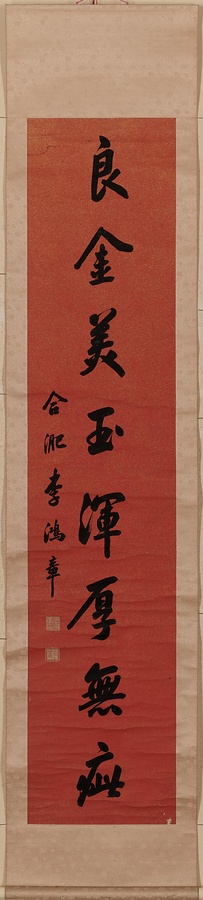 良金美玉渾厚無疵
合淝李鴻章